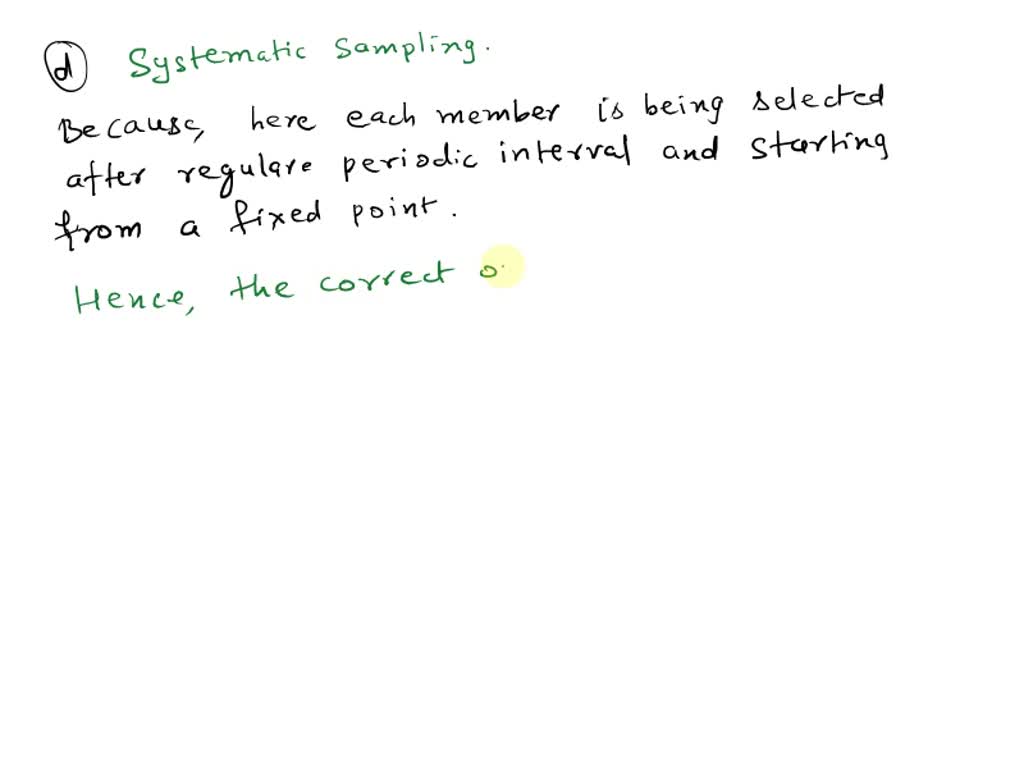 d Systematic Sampling.
Because, here each member is being selected
after regulare periodic interval and starting
from a fixed point.
Hence, the correct o